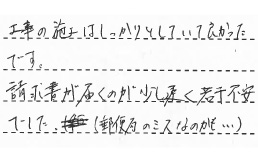 工事の施工はしっかりとしていて良かった
です。
請求書が届くのが少し遅く若干不安
でした。(郵便局のミスなのかも…)